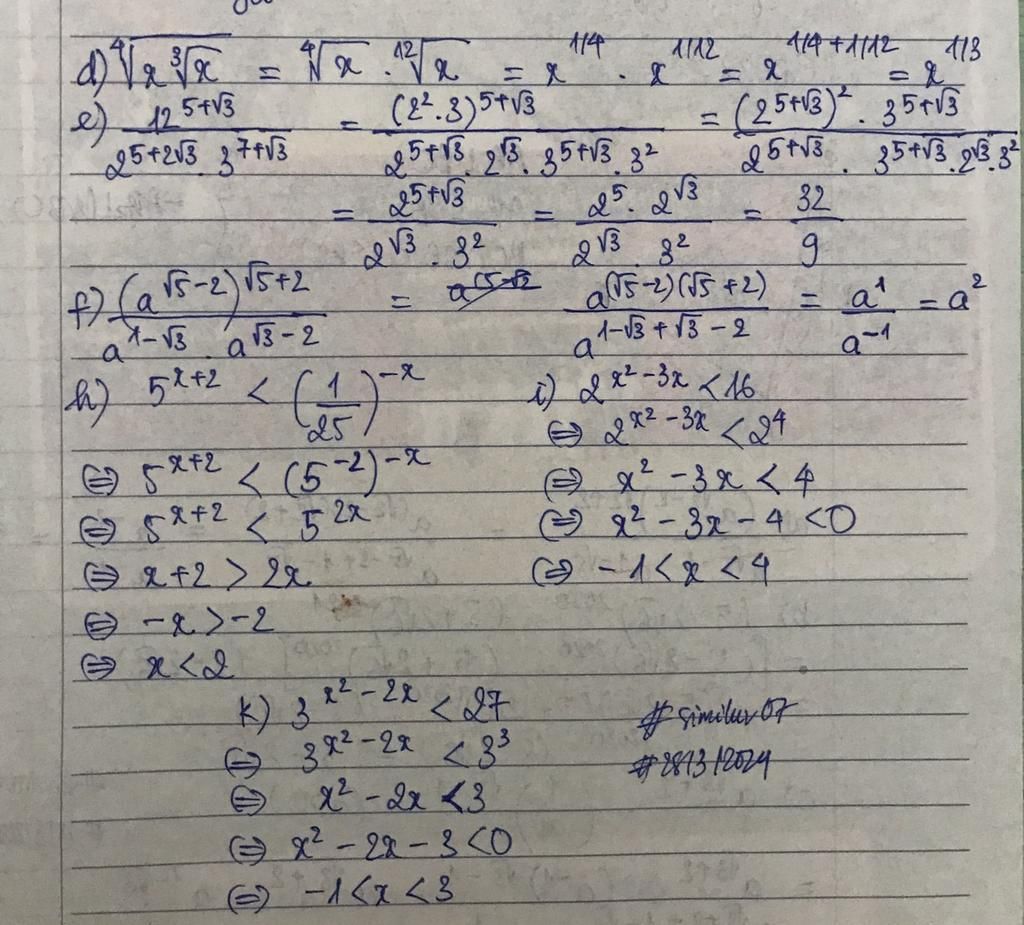 d) ⁴√(x³√x) = ⁴√x . ¹²√x = x^1/4 . x^1/12 = x^1/4+1/12 = x^1/3
e) 12^5+√3 / 2^5+2√3 . 3^7+√3 = (2² . 3)^5+√3 / 2^5+√3 . 2^√3 . 3^5+√3 . 3² = (2^5+√3)² . 3^5+√3 / 2^5+√3 . 3^5+√3 . 2^√3 . 3²
= 2^5+√3 / 2^√3 . 3² = 2⁵ . 2^√3 / 2^√3 . 3² = 32/9
f) (a^√5-2)^√5+2 / a^1-√3 . a^√3-2 = a^(√5-2)(√5+2) / a^1-√3+√3-2 = a¹ / a⁻¹ = a²
h) 5^x+2 < (1/25)^-x
⇔ 5^x+2 < (5⁻²)^-x
⇔ 5^x+2 < 5^2x
⇔ x+2 > 2x
⇔ -x > -2
⇔ x < 2
i) 2^x²-3x < 16
⇔ 2^x²-3x < 2⁴
⇔ x² - 3x < 4
⇔ x² - 3x - 4 < 0
⇔ -1 < x < 4
k) 3^x²-2x < 27
⇔ 3^x²-2x < 3³
⇔ x² - 2x < 3
⇔ x² - 2x - 3 < 0
⇔ -1 < x < 3
# similuv07
#28/3/2024